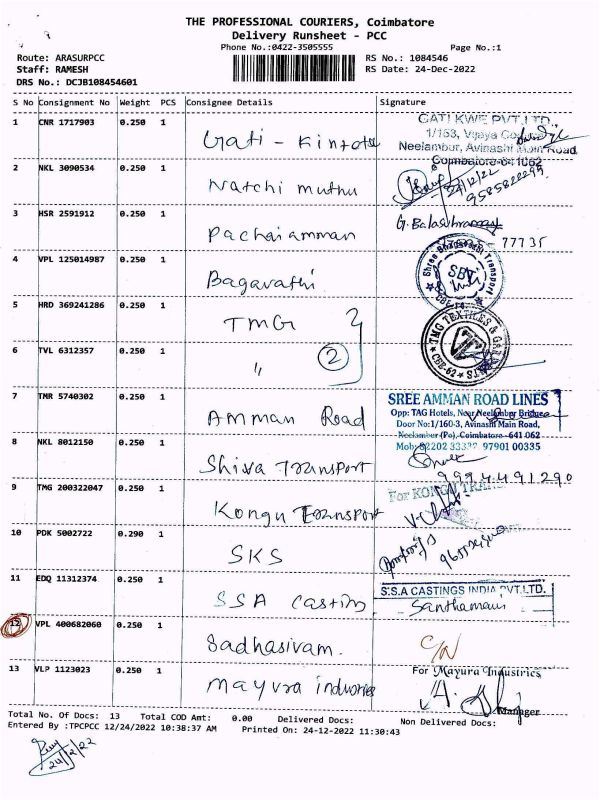 THE PROFESSIONAL COURIERS, Coimbatore
Delivery Runsheet - PCC
Phone No.:0422-3505555 Page No.:1
Route: ARASURPCC RS No.: 1084546
Staff: RAMESH RS Date: 24-Dec-2022
DRS No.: DCJB108454601
S No Consignment No Weight PCS Consignee Details Signature
1 CNR 1717903 0.250 1 Gati - Kintetsu
GATI KWE PVT.LTD.
1/163, Vijaya
Neelambur, Avinashi Main Road
Coimbatore-641062
2 NKL 3090534 0.250 1 Natchi muthu
24/12/22
9585822295
3 HSR 2591912 0.250 1 Pachaiamman
G. Balasubramani
77735
4 VPL 125014987 0.250 1 Bagavathi
Shree Bhagavathi Transport
SBT
5 HRD 369241286 0.250 1 TMG
TMG TEXTILES &
CBE-62
6 TVL 6312357 0.250 1 " 2
7 TMR 5740302 0.250 1 Amman Road
SREE AMMAN ROAD LINES
Opp: TAG Hotels, Near Neelambur Bridge
Door No:1/160-3, Avinashi Main Road,
Neelambur (Po), Coimbatore - 641 062
Mob: 82202 33332 97901 00335
8 NKL 8012150 0.250 1 Shiva Transport
9994491290
9 TMG 200322047 0.250 1 Kongu Transport
For KONGU TRANS
10 PDK 5002722 0.290 1 SKS
11 EDQ 11312374 0.250 1 SSA Casting
S.S.A CASTINGS INDIA PVT.LTD.
Santhamani
12 VPL 400682060 0.250 1 Sadhasivam.
C/N
13 VLP 1123023 0.250 1 Mayura industries
For Mayura Industries
Manager
Total No. Of Docs: 13 Total COD Amt: 0.00 Delivered Docs: Non Delivered Docs:
Entered By :TPCPCC 12/24/2022 10:38:37 AM Printed On: 24-12-2022 11:30:43
24/12/22